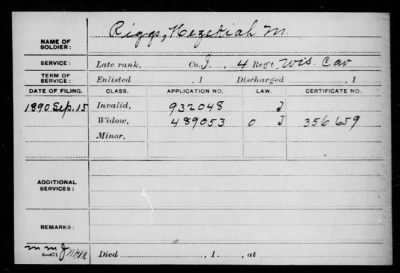 NAME OF SOLDIER: Riggs, Hezekiah M.
SERVICE: Late rank, Co. I, 4 Reg't Wis. Cav
TERM OF SERVICE: Enlisted , 1 Discharged , 1
DATE OF FILING. CLASS. APPLICATION NO. LAW. CERTIFICATE NO.
1890 Sep. 15 Invalid, 932048 J
Widow, 489053 O J 356659
Minor,
ADDITIONAL SERVICES:
REMARKS:
Died , 1 , at